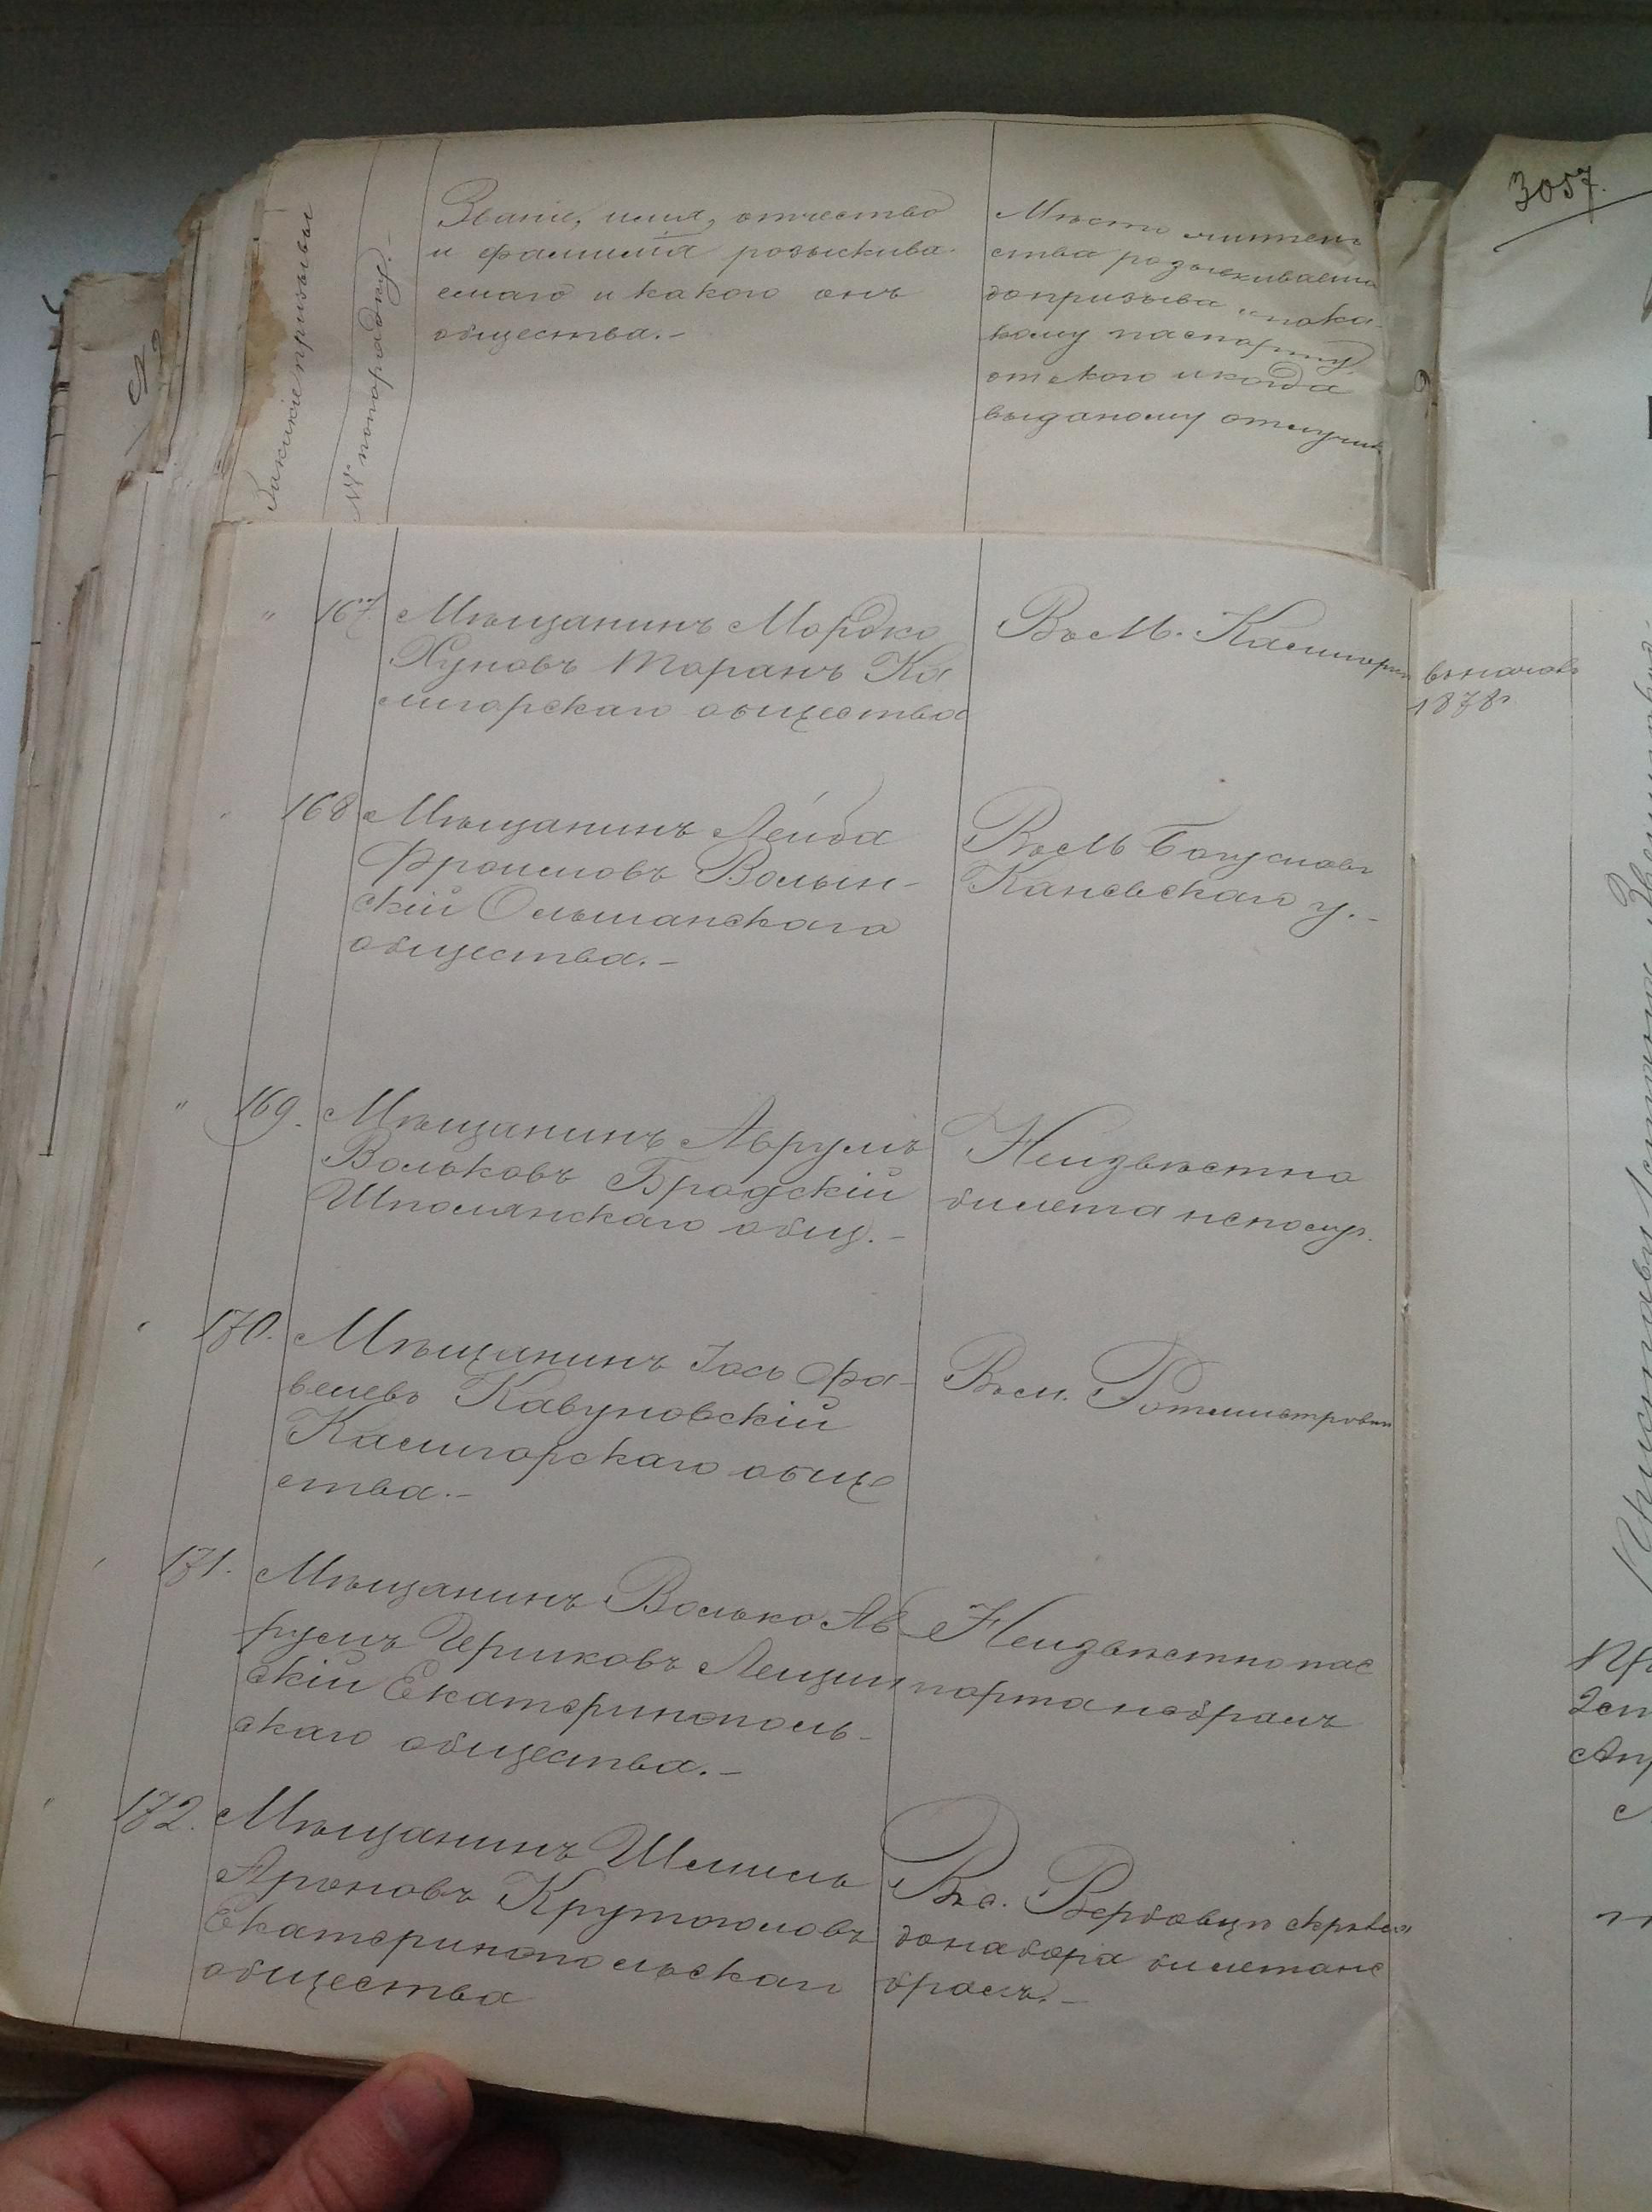 3057.
№ по порядку.
Званіе, имя, отчество
и фамилія розыскива
емаго и какого онъ
общества.-
Мѣсто житель
ства розыскиваема
до призыва и по ка
кому паспорту,
отъ кого и когда
выданому отлуч
" 167. Мѣщанинъ Мордко
Хуновъ Таранъ Ка
лигорскаго общества
Въ М. Калигорк
въ началѣ
1878г
" 168 Мѣщанинъ Лейба
Фроимовъ Волын-
скій Ольшанскаго
общества.-
Въ М. Богуславѣ
Каневскаго у.-
" 169. Мѣщанинъ Аврумъ
Вольковъ Бродскій
Шполянскаго общ.-
Неизвѣстно
билета неполуч.
170. Мѣщанинъ Іось Фа-
велевъ Кавуновскій
Калигорскаго обще
ства.-
Въ м. Ротмистровкѣ
171. Мѣщанинъ Волько Ав
румъ Гершковъ Лещин
скій Екатеринополь-
скаго общества.-
Неизвѣстно пас
порта небралъ
172. Мѣщанинъ Шмиль
Ароновъ Крутоголовъ
Екатеринопольскаго
общества
Въ с. Вербовцѣ
до набора билета не
бралъ.-